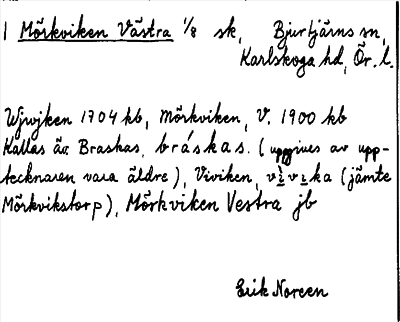 1 Mörkviken Västra 1/8 sk, Bjurtjärns sn,
Karlskoga hd, Ör. l.
Wjwjken 1704 kb, Mörkviken, V. 1900 kb
Kallas äv. Braskas, bráskas. (uppgives av upp-
tecknaren vara äldre), Viviken, vìvıka (jämte
Mörkvikstorp), Mörkviken Vestra jb
Erik Noreen